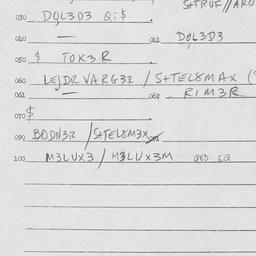 S+TRUF//ARO
030 DOL3D3 Qi$ .
040 — 041 DOL3D3
050 $ TOK3R
060 LEJDR VARG32 / S+TEL8MAX (
061 — 062 R1M3R
070 $
090 BODN3R / S+TEL8M3X 091
100 M3LUX3 / M3LUX3M QED EQ